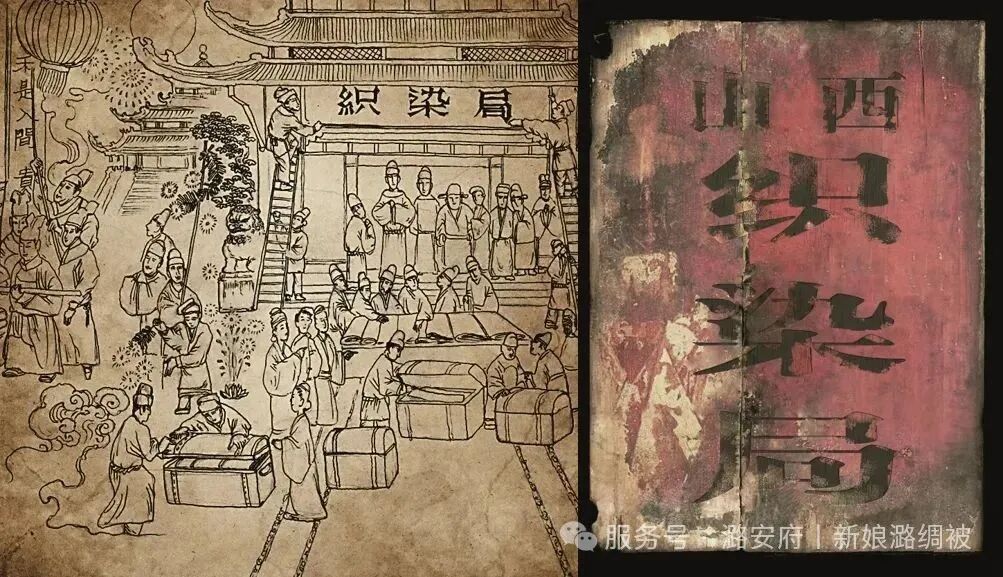 是人間
織染局
山西
织
染
局
服务号 · 潞安府丨新娘潞绸被